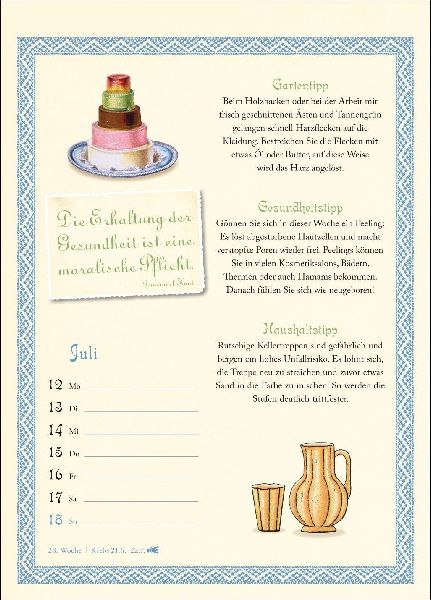 Gartentipp
Beim Holzhacken oder bei der Arbeit mit
frisch geschnittenen Ästen und Tannengrün
gelangen schnell Harzflecken auf die
Kleidung. Bestreichen Sie die Flecken mit
etwas Öl oder Butter, auf diese Weise
wird das Harz angelöst.
Die Erhaltung der
Gesundheit ist eine
moralische Pflicht.
Immanuel Kant
Gesundheitstipp
Gönnen Sie sich in dieser Woche ein Peeling:
Es löst abgestorbene Hautzellen und macht
verstopfte Poren wieder frei. Peelings können
Sie in vielen Kosmetiksalons, Bädern,
Thermen oder auch Hamams bekommen.
Danach fühlen Sie sich wie neugeboren!
Haushaltstipp
Rutschige Kellertreppen sind gefährlich und
bergen ein hohes Unfallrisiko. Es lohnt sich,
die Treppe neu zu streichen und zuvor etwas
Sand in die Farbe zu mischen. So werden die
Stufen deutlich trittfester.
Juli
12 Mo
13 Di
14 Mi
15 Do
16 Fr
17 Sa
18 So
28. Woche | Krebs